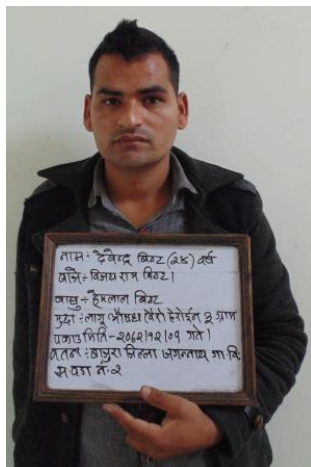 नाम:- देवेन्द्र बिष्ट (२४) वर्ष
बाजे:- विजय राम बिष्ट।
बाबु:- हेमलाल बिष्ट
मुद्दा:- लागु औषध (खैरो) हेरोईन ३ ग्राम
पक्राउ मिति - २०६८।१२।०१ गते।
वतन : बाजुरा जिल्ला जगन्नाथ गा वि
स वडा नं.-२